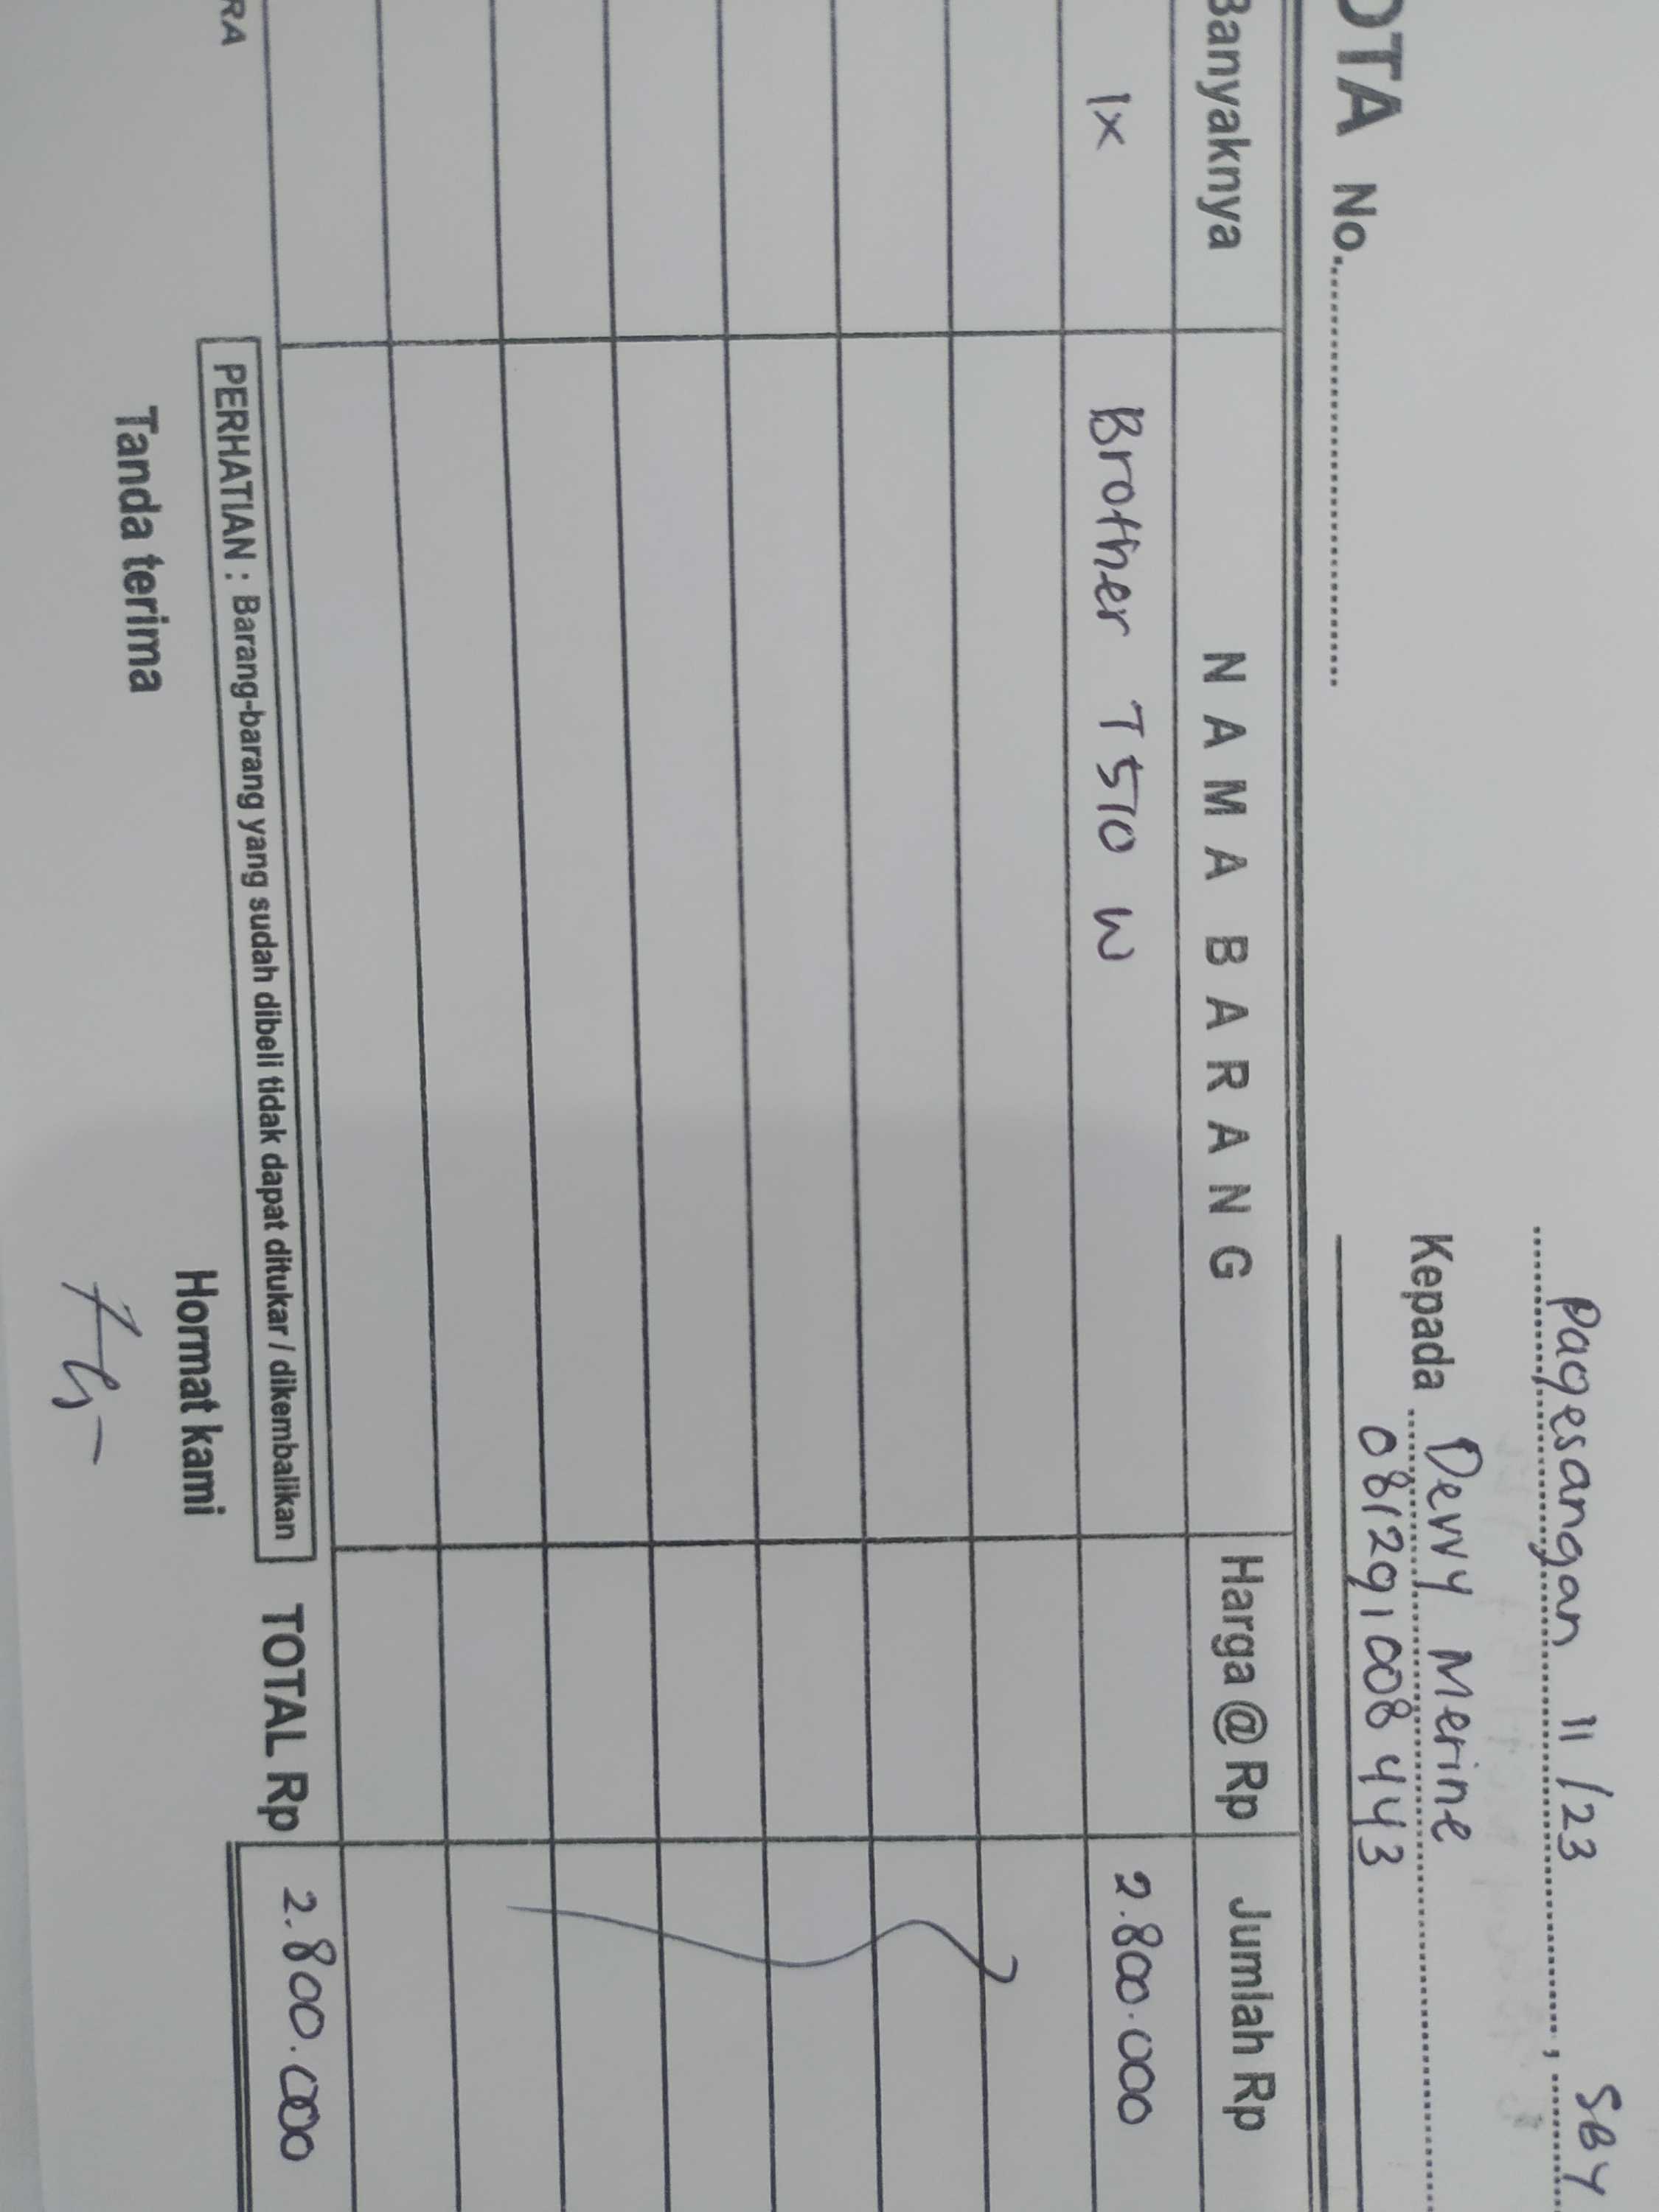 Pagesangan 11/23, SBY
OTA No.
Kepada Devvy Merine
081291008443
Banyaknya NAMA BARANG Harga @ Rp Jumlah Rp
1x Brother T510 W 2.800.000
PERHATIAN : Barang-barang yang sudah dibeli tidak dapat ditukar / dikembalikan TOTAL Rp 2.800.000
RA
Tanda terima Hormat kami